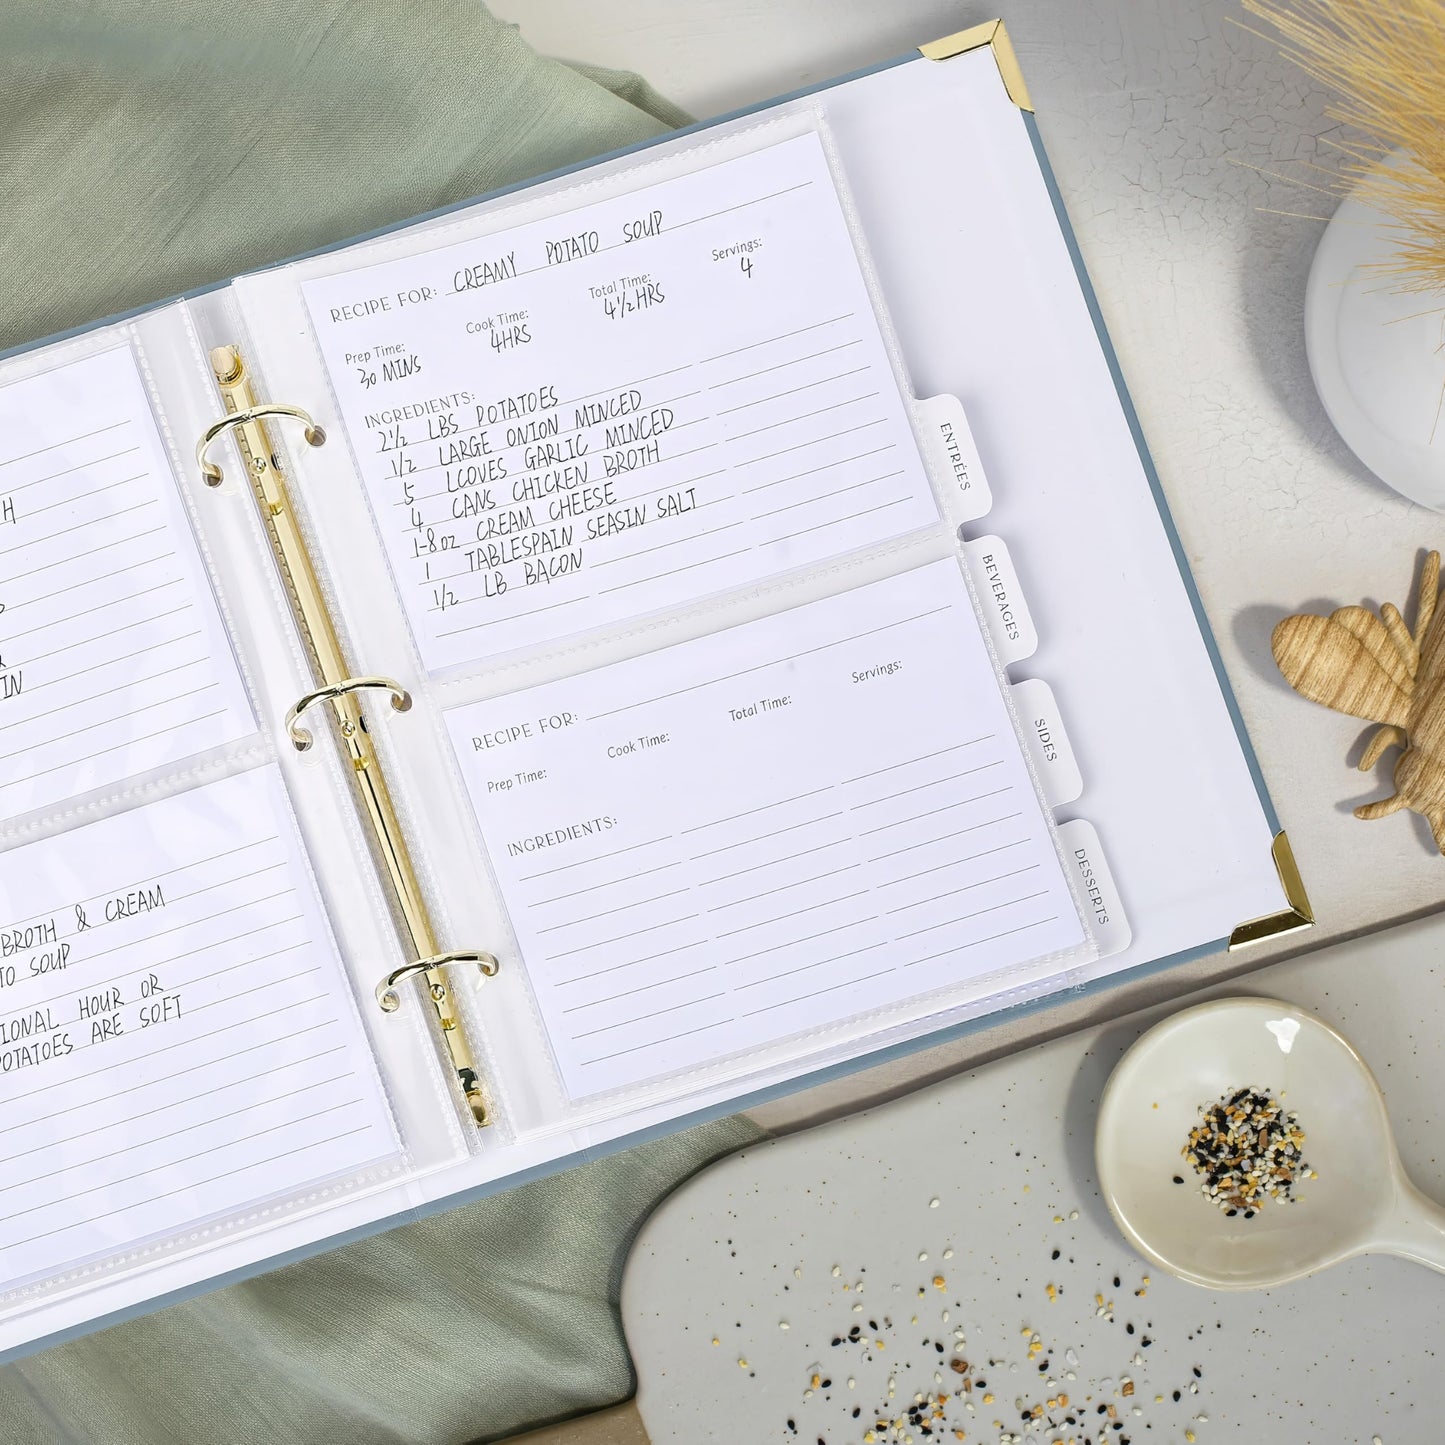 H
IN
BROTH & CREAM
TO SOUP
IONAL HOUR OR
POTATOES ARE SOFT
RECIPE FOR: CREAMY POTATO SOUP
Prep Time: Cook Time: Total Time: Servings:
30 MINS 4HRS 4 1/2 HRS 4
INGREDIENTS:
2 1/2 LBS POTATOES
1/2 LARGE ONION MINCED
5 LCOVES GARLIC MINCED
4 CANS CHICKEN BROTH
1-8 oz CREAM CHEESE
1 TABLESPAIN SEASIN SALT
1/2 LB BACON
RECIPE FOR:
Prep Time: Cook Time: Total Time: Servings:
INGREDIENTS:
ENTRÉES
BEVERAGES
SIDES
DESSERTS